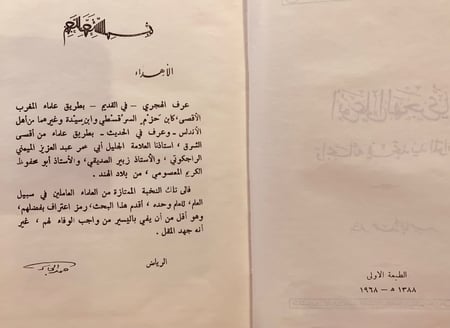 الأهداء
عرف الهجري – في القديم – بطريق علماء المغرب
الأقصى، كابن حزم السرقسطي وابن سيدة وغيرهما من أهل
الأندلس – وعرف في الحديث – بطريق علماء من أقصى
الشرق، استاذنا العلامة الجليل أبي عمر عبد العزيز الميمني
الراجكوتي، والأستاذ زبير الصديقي، والأستاذ أبو محفوظ
الكريم المعصومي، من بلاد الهند.
فالى تلك النخبة الممتازة من العلماء العاملين في سبيل
العلم، للعلم وحده، أقدم هذا البحث، رمز اعتراف بفضلهم،
وهو أقل من أن يفي باليسير من واجب الوفاء لهم، غير
أنه جهد المقل.
الرياض
حمد الجاسر
الطبعة الاولى
١٣٨٨ ه – ١٩٦٨